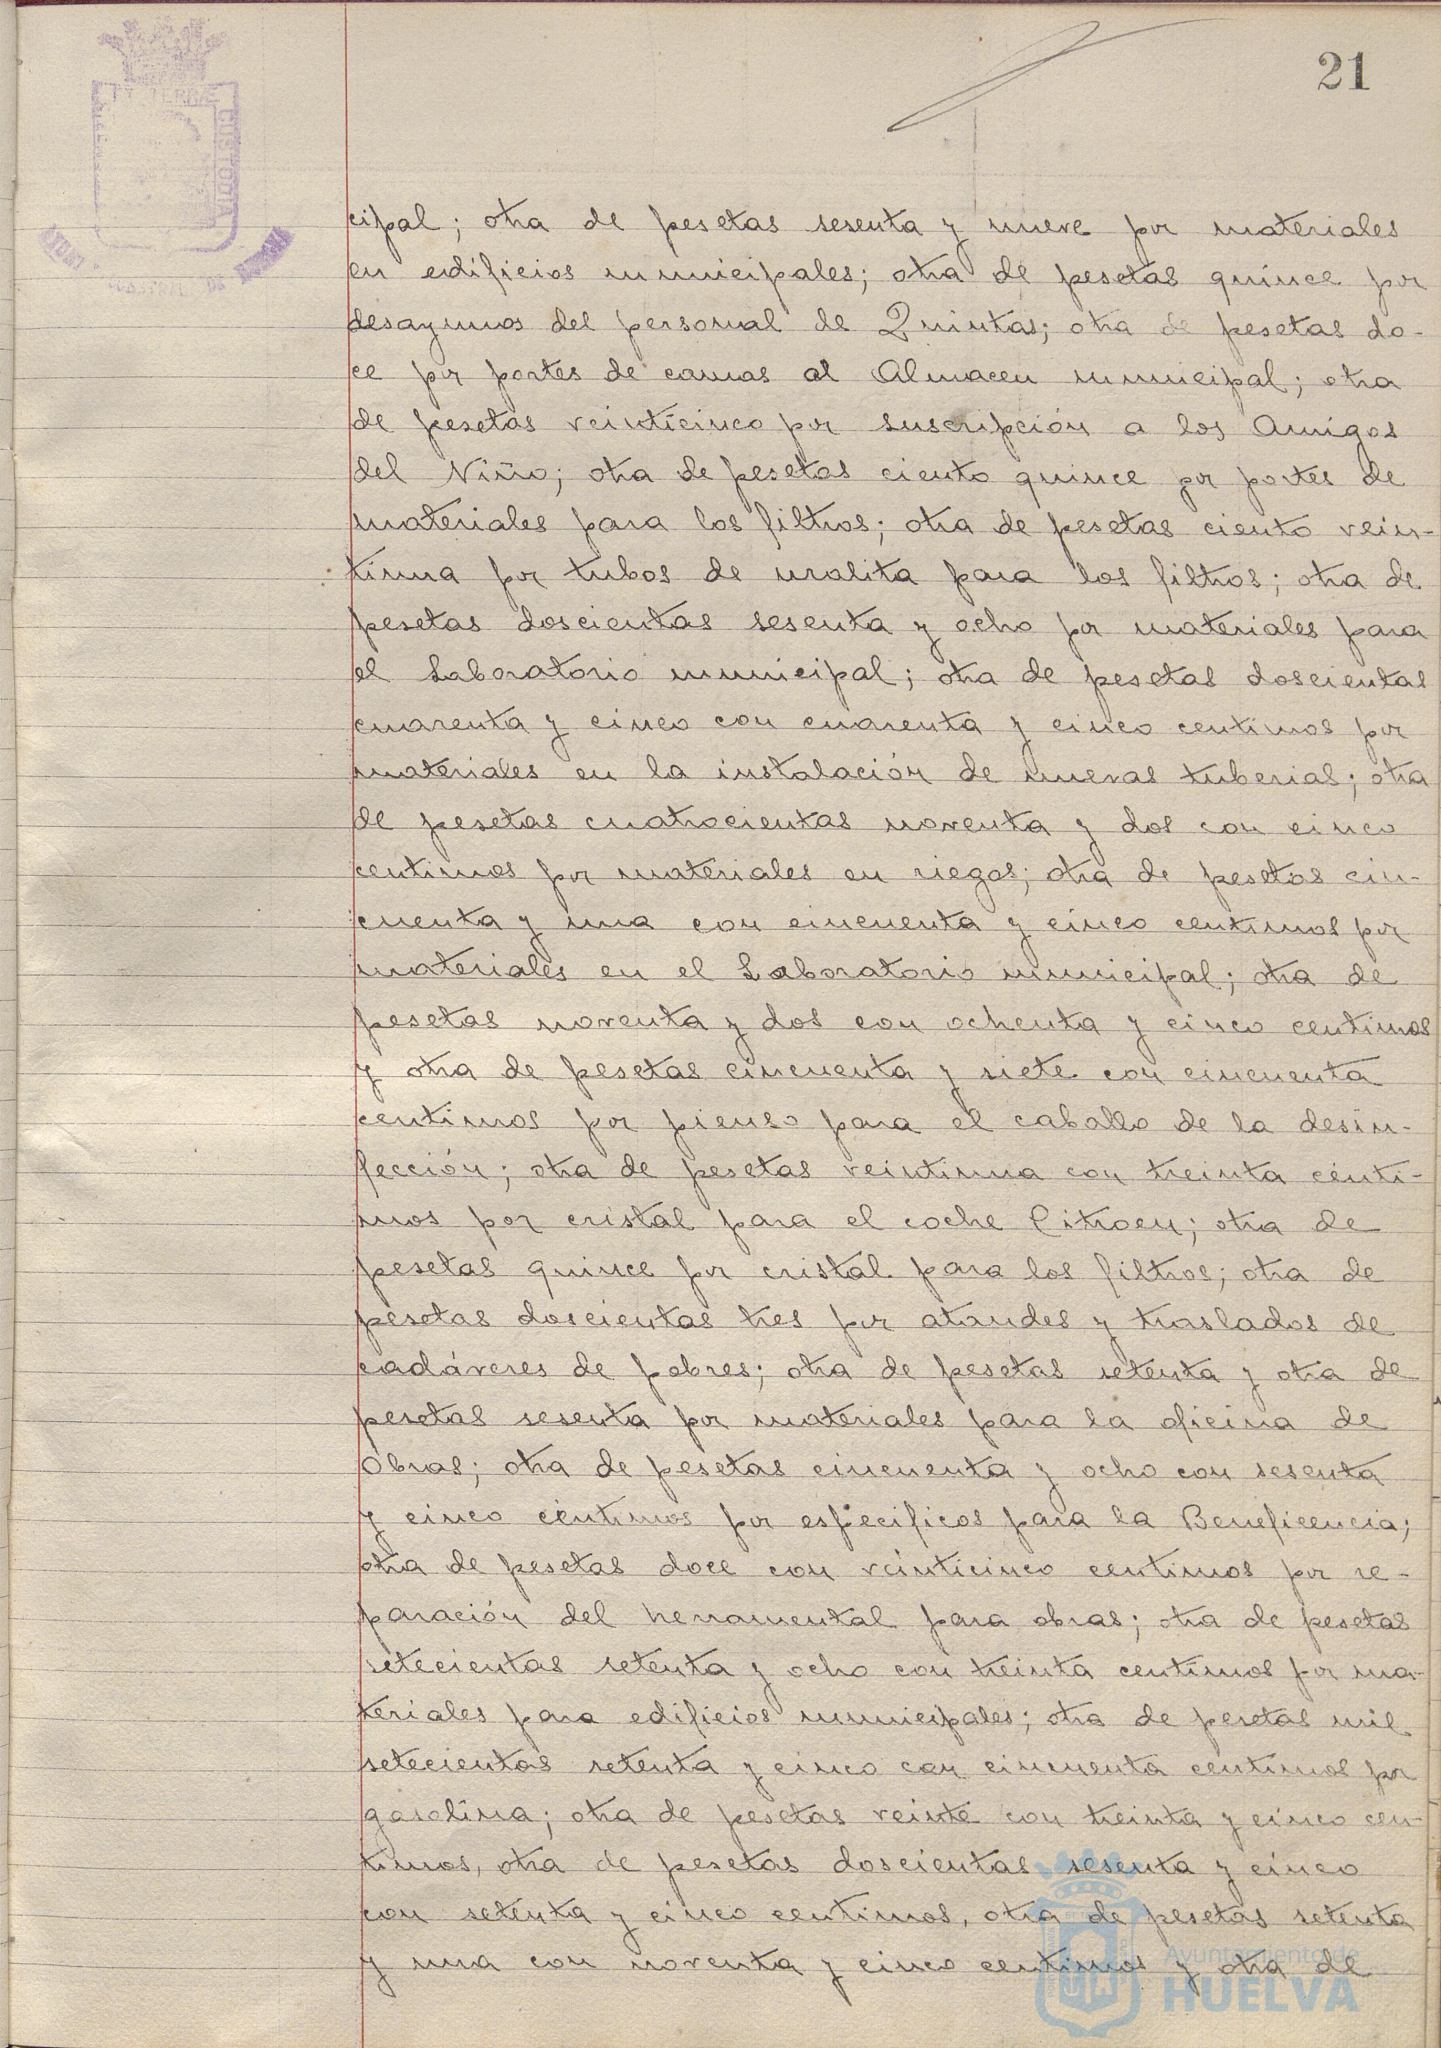 21
cipal; otra de pesetas sesenta y nueve por materiales
en edificios municipales; otra de pesetas quince por
desayunos del personal de Quintas; otra de pesetas do-
ce por portes de camas al Almacen municipal; otra
de pesetas veinticinco por suscripción a los Amigos
del Niño; otra de pesetas ciento quince por portes de
materiales para los filtros; otra de pesetas ciento vein-
tiuna por tubos de uralita para los filtros; otra de
pesetas doscientas sesenta y ocho por materiales para
el Laboratorio municipal; otra de pesetas doscientas
cuarenta y cinco con cuarenta y cinco centimos por
materiales en la instalación de nuevas tuberias; otra
de pesetas cuatrocientas noventa y dos con cinco
centimos por materiales en riegos; otra de pesetas cin-
cuenta y una con cincuenta y cinco centimos por
materiales en el Laboratorio municipal; otra de
pesetas noventa y dos con ochenta y cinco centimos
y otra de pesetas cincuenta y siete con cincuenta
centimos por pienso para el caballo de la desin-
fección; otra de pesetas veintiuna con treinta centi-
mos por cristal para el coche Citroen; otra de
pesetas quince por cristal para los filtros; otra de
pesetas doscientas tres por ataudes y traslados de
cadáveres de pobres; otra de pesetas setenta y otra de
pesetas sesenta por materiales para la oficina de
Obras; otra de pesetas cincuenta y ocho con sesenta
y cinco céntimos por especificos para la Beneficencia;
otra de pesetas doce con veinticinco centimos por re-
paración del herramental para obras; otra de pesetas
setecientas setenta y ocho con treinta centimos por ma-
teriales para edificios municipales; otra de pesetas mil
setecientas setenta y cinco con cincuenta centimos por
gasolina; otra de pesetas veinte con treinta y cinco cen-
timos, otra de pesetas doscientas sesenta y cinco
con setenta y cinco centimos, otra de pesetas setenta
y una con noventa y cinco centimos y otra de
Ayuntamiento de
HUELVA